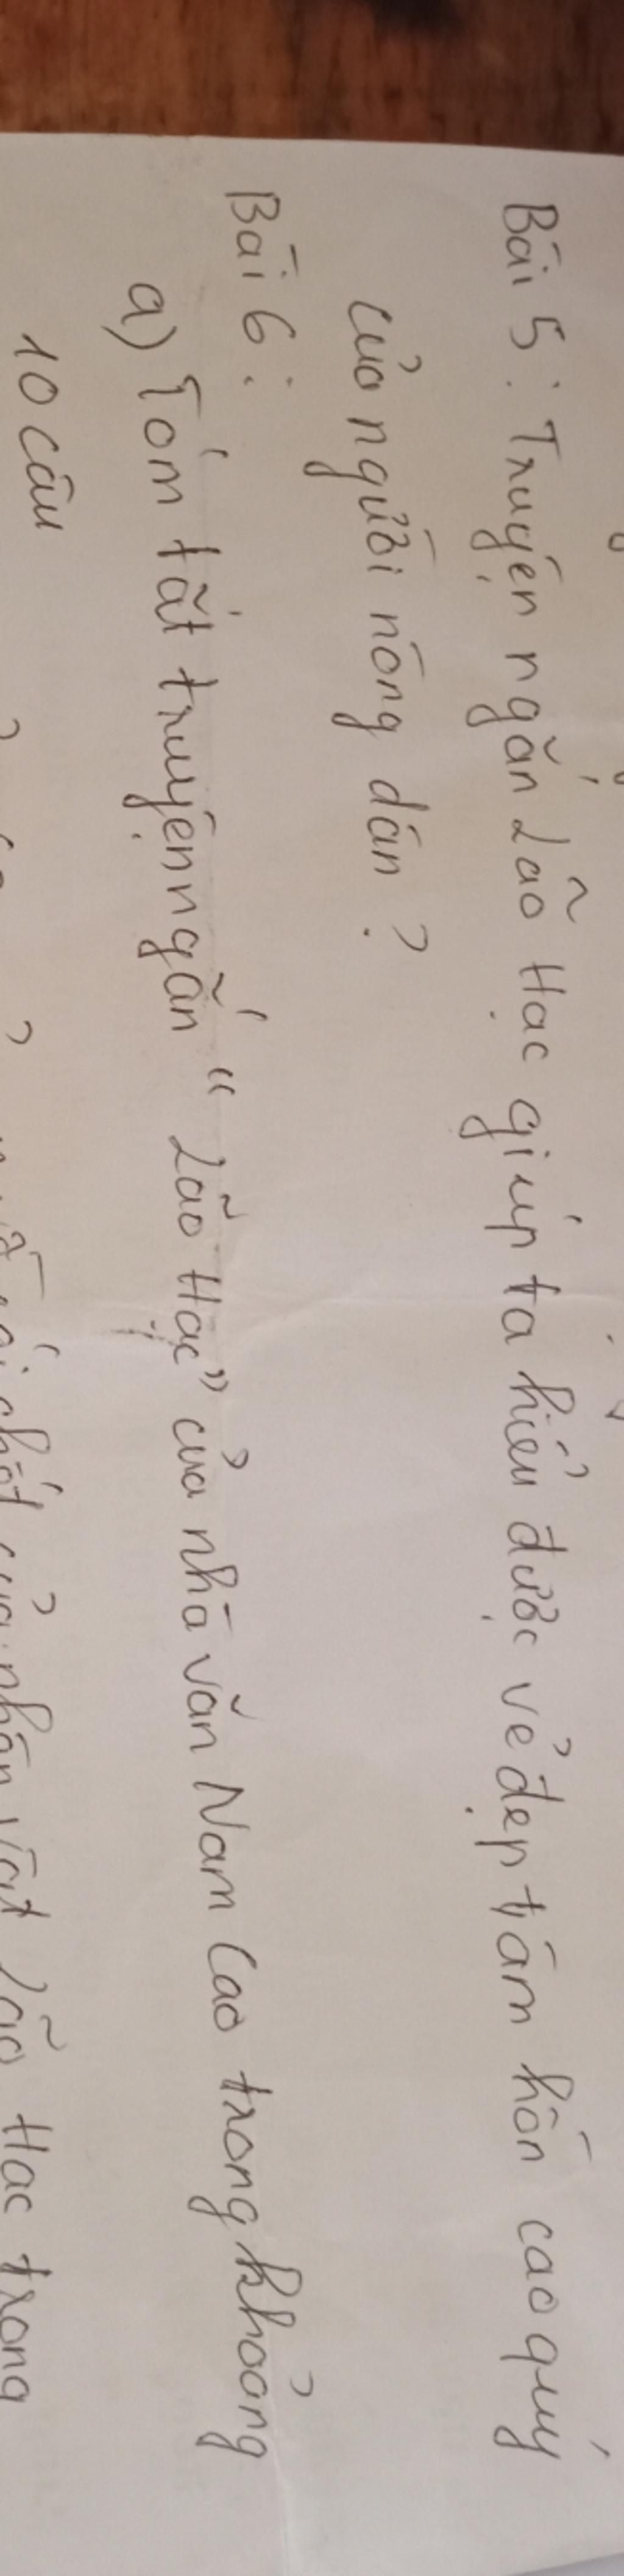 Bài 5: Truyện ngắn Lão Hạc giúp ta hiểu được vẻ đẹp tâm hồn cao quý
của người nông dân?
Bài 6:
a) Tóm tắt truyện ngắn "Lão Hạc" của nhà văn Nam Cao trong khoảng
10 câu
của nhân vật Lão Hạc trong